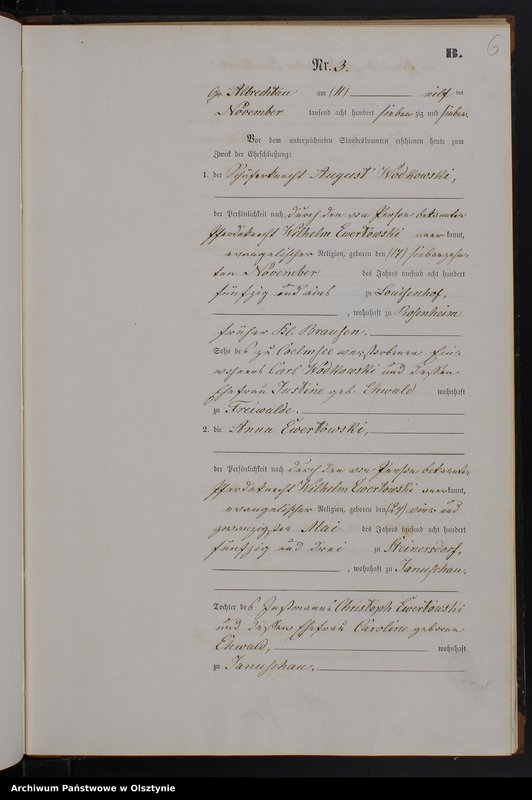 6
B.
Nr. 3.
Gr. Albrechtau am (11) elf ten
November tausend acht hundert sieben zig und sieben.
Vor dem unterzeichneten Standesbeamten erschienen heute zum
Zweck der Eheschließung:
1. der Schäferknecht August Wodkowski,
der Persönlichkeit nach durch den von Person bekannten
Pferdeknecht Wilhelm Ewertowski anerkannt,
evangelischer Religion, geboren den (17) siebenzehn-
ten November des Jahres tausend acht hundert
fünfzig und eins zu Louisenhof,
, wohnhaft zu Rosenheim
früher Kl. Brausen.
Sohn des zu verstorbenen Ein-
wohners Carl Wodkowski und dessen
Ehefrau Justine geb. Ehwald wohnhaft
zu Freiwalde.
2. die Anna Ewertowski,
der Persönlichkeit nach durch den von Person bekannten
Pferdeknecht Wilhelm Ewertowski anerkannt,
evangelischer Religion, geboren den (24) vier und
zwanzigsten Mai des Jahres tausend acht hundert
fünfzig und drei zu Steinersdorf,
, wohnhaft zu Januschau,
Tochter des Christoph Ewertowski
und dessen Ehefrau Caroline geboren
Ehwald, wohnhaft
zu Januschau,
Archiwum Państwowe w Olsztynie